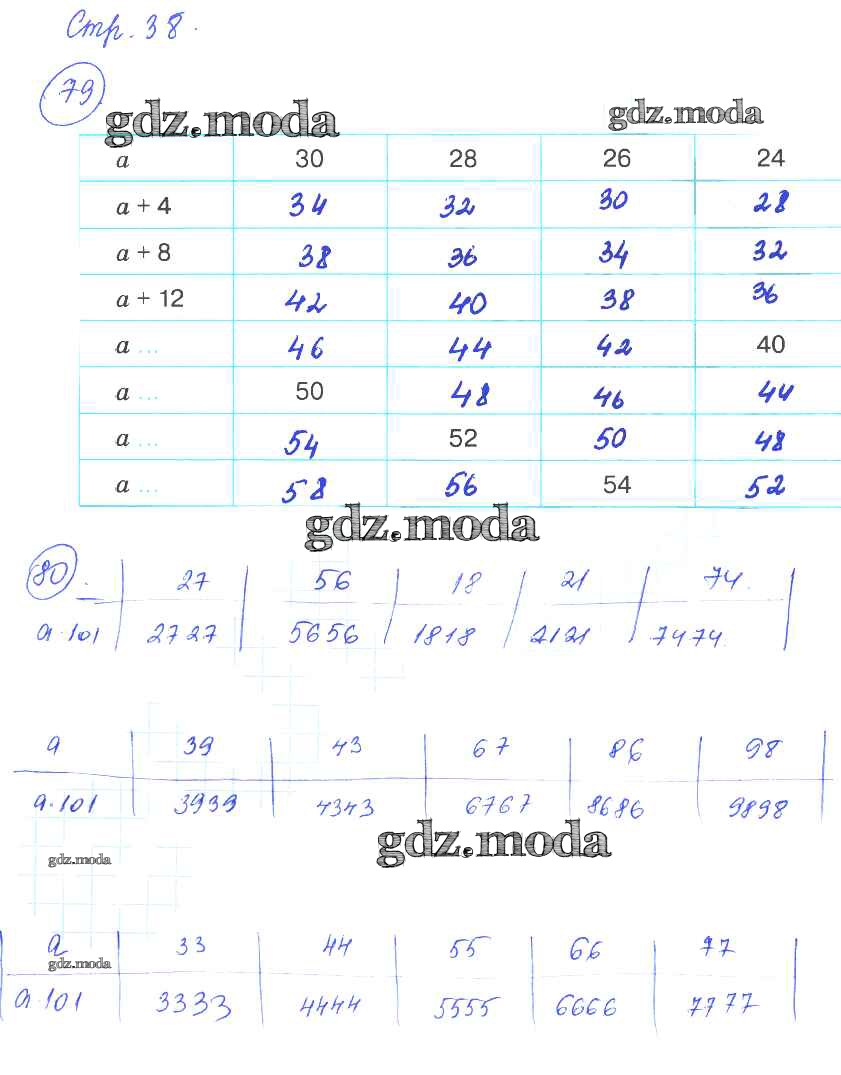 Стр. 38.
79
gdz.moda gdz.moda
a 30 28 26 24
a + 4 34 32 30 28
a + 8 38 36 34 32
a + 12 42 40 38 36
a ... 46 44 42 40
a ... 50 48 46 44
a ... 54 52 50 48
a ... 58 56 54 52
gdz.moda
80. 27 56 18 21 74.
a·101 2727 5656 1818 2121 7474.
a 39 43 67 86 98
a·101 3939 4343 6767 8686 9898
gdz.moda
gdz.moda
a 33 44 55 66 77
gdz.moda
a·101 3333 4444 5555 6666 7777